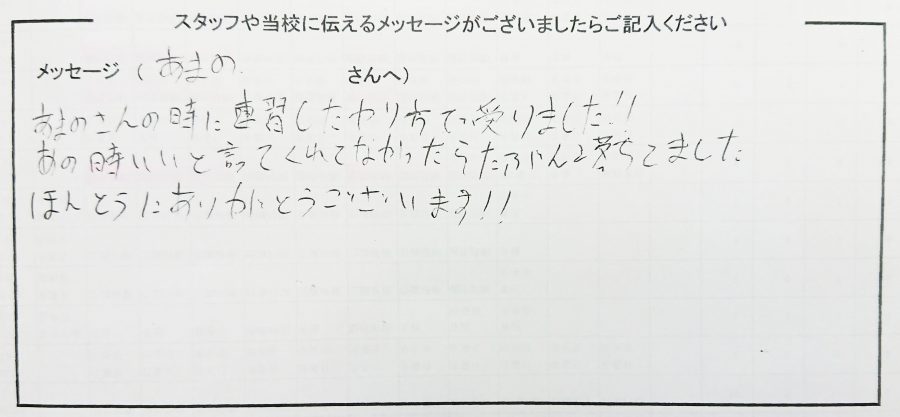 スタッフや当校に伝えるメッセージがございましたらご記入ください
メッセージ ( あまの さんへ)
あまのさんの時に練習したやり方で受りました!!
あの時いいと言ってくれてなかったらたぶん2落ちてました
ほんとうにありがとうございます!!